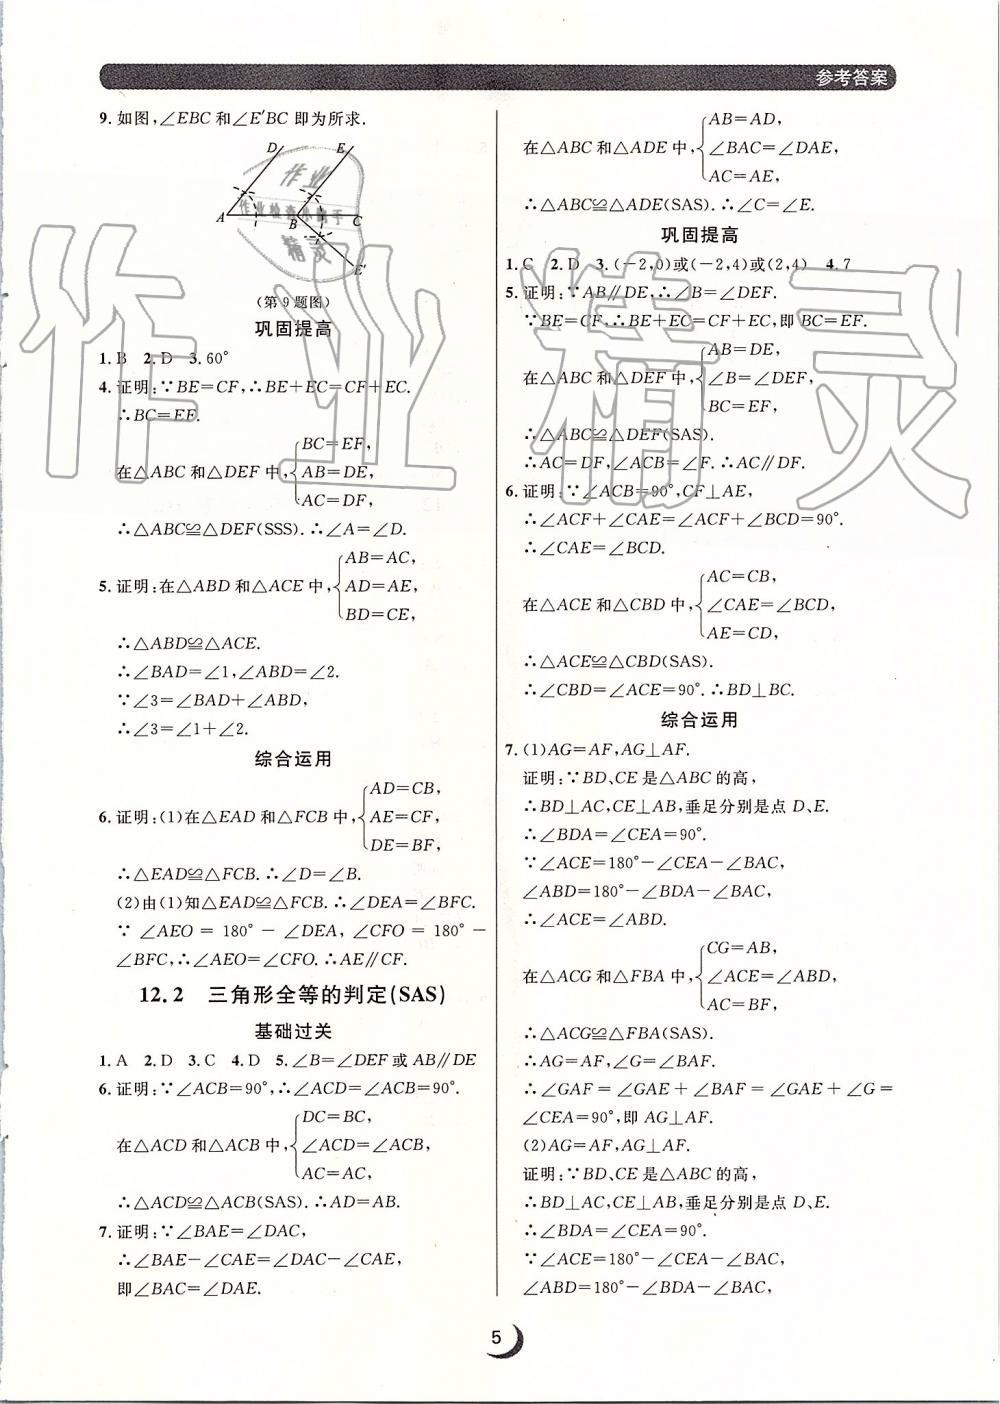 参考答案
9. 如图,∠EBC 和∠E′BC 即为所求.
D E
A B C
E′
(第 9 题图)
巩固提高
1. B 2. D 3. 60°
4. 证明:∵BE=CF,∴BE+EC=CF+EC.
∴BC=EF.
BC=EF,
在△ABC 和△DEF 中, AB=DE,
AC=DF,
∴△ABC≌△DEF(SSS). ∴∠A=∠D.
AB=AC,
5. 证明:在△ABD 和△ACE 中, AD=AE,
BD=CE,
∴△ABD≌△ACE.
∴∠BAD=∠1,∠ABD=∠2.
∵∠3=∠BAD+∠ABD,
∴∠3=∠1+∠2.
综合运用
AD=CB,
6. 证明:(1)在△EAD 和△FCB 中, AE=CF,
DE=BF,
∴△EAD≌△FCB. ∴∠D=∠B.
(2)由(1)知△EAD≌△FCB. ∴∠DEA=∠BFC.
∵ ∠AEO = 180° − ∠DEA, ∠CFO = 180° −
∠BFC,∴∠AEO=∠CFO. ∴AE∥CF.
12.2 三角形全等的判定(SAS)
基础过关
1. A 2. D 3. C 4. D 5. ∠B=∠DEF 或 AB∥DE
6. 证明:∵∠ACB=90°,∴∠ACD=∠ACB=90°.
DC=BC,
在△ACD 和△ACB 中, ∠ACD=∠ACB,
AC=AC,
∴△ACD≌△ACB(SAS). ∴AD=AB.
7. 证明:∵∠BAE=∠DAC,
∴∠BAE−∠CAE=∠DAC−∠CAE,
即∠BAC=∠DAE.
AB=AD,
在△ABC 和△ADE 中, ∠BAC=∠DAE,
AC=AE,
∴△ABC≌△ADE(SAS). ∴∠C=∠E.
巩固提高
1. C 2. D 3. (−2,0)或(−2,4)或(2,4) 4. 7
5. 证明:∵AB∥DE,∴∠B=∠DEF.
∵BE=CF,∴BE+EC=CF+EC,即 BC=EF.
AB=DE,
在△ABC 和△DEF 中, ∠B=∠DEF,
BC=EF,
∴△ABC≌△DEF(SAS).
∴AC=DF,∠ACB=∠F. ∴AC∥DF.
6. 证明:∵∠ACB=90°,CF⊥AE,
∴∠ACF+∠CAE=∠ACF+∠BCD=90°.
∴∠CAE=∠BCD.
AC=CB,
在△ACE 和△CBD 中, ∠CAE=∠BCD,
AE=CD,
∴△ACE≌△CBD(SAS).
∴∠CBD=∠ACE=90°. ∴BD⊥BC.
综合运用
7. (1)AG=AF,AG⊥AF.
证明:∵BD、CE 是△ABC 的高,
∴BD⊥AC,CE⊥AB,垂足分别是点 D、E.
∴∠BDA=∠CEA=90°.
∵∠ACE=180°−∠CEA−∠BAC,
∠ABD=180°−∠BDA−∠BAC,
∴∠ACE=∠ABD.
CG=AB,
在△ACG 和△FBA 中, ∠ACE=∠ABD,
AC=BF,
∴△ACG≌△FBA(SAS).
∴AG=AF,∠G=∠BAF.
∴∠GAF=∠GAE+∠BAF=∠GAE+∠G=
∠CEA=90°,即 AG⊥AF.
(2)AG=AF,AG⊥AF.
证明:∵BD、CE 是△ABC 的高,
∴BD⊥AC,CE⊥AB,垂足分别是点 D、E.
∴∠BDA=∠CEA=90°.
∵∠ACE=180°−∠CEA−∠BAC,
∠ABD=180°−∠BDA−∠BAC,
5
作业精灵
作业
作业检查小助手
精灵